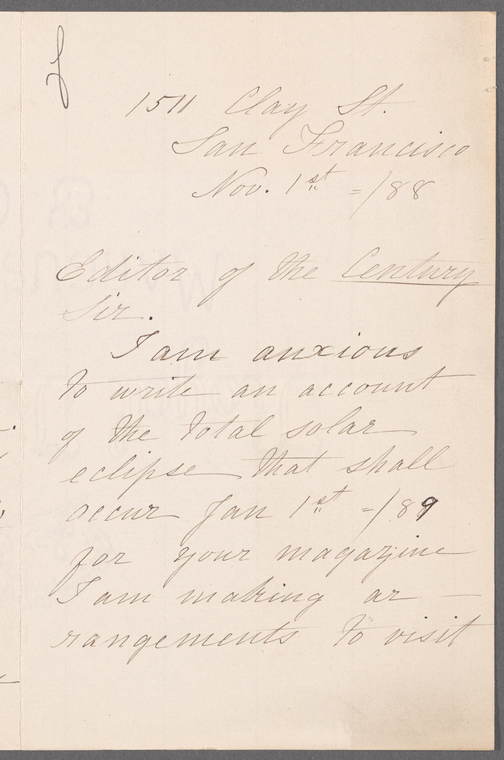 1511 Clay St.
San Francisco
Nov. 1st = /88
Editor of the Century
Sir.
I am anxious
to write an account
of the total solar
eclipse that shall
occur Jan 1st = /89
for your magazine
I am making ar –
rangements to visit